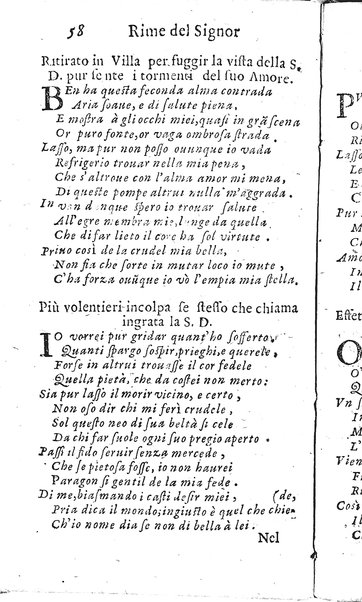 58 Rime del Signor
Ritirato in Villa per fuggir la vista della S.
D. pur sente i tormenti del suo Amore.
BEn ha questa feconda alma contrada
Aria soaue, e di salute piena.
E mostra à gli occhi miei, quasi in grã scena
Or puro fonte, or vaga ombrosa strada.
Lasso, ma pur non posso ouunque io vada
Refrigerio trouar nella mia pena,
Che s'altroue con l'alma amor mi mena,
Di queste pompe altrui nulla m'aggrada.
In van dunque spero io trouar salute
All'egre membra mie, lunge da quella
Che di far lieto il core ha sol virtute.
Prino così de la crudel mia bella,
Non fia che sorte in mutar loco io mute,
C'ha forza ouũque io vò l'empia mia stella.
Più volentieri incolpa se stesso che chiama
ingrata la S. D.
IO vorrei pur gridar quant'ho sofferto,
Quanti spargo sospir, prieghi, e querele,
Forse in altrui trouasse il cor fedele
Quella pietà, che da costei non merto:
Sia pur lasso il morir vicino, e certo,
Non oso dir chi mi ferì crudele,
Sol questo neo di sua beltà si cele
Da chi far suole ogni suo pregio aperto.
Passi il fido seruir senza mercede,
Che se pietosa fosse, io non haurei
Paragon sì gentil de la mia fede.
Di me, biasmando i casti desir miei, (de,
Pria dica il mondo; ingiusto è quel che chie-
Ch'io nome dia se non di bella à lei.
Nel